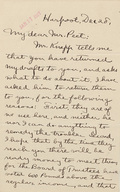 Harpoot, Dec. 25.
My dear Mr. Peet:
Mr. Knapp tells me
that you have returned
my drafts to you, and asks
what to do about it. I have
asked him to return them
to you, for the following
reasons: First, they are of
no use here, and neither he
nor I can do anything to
remedy the trouble. Second
I hope that by the time they
reach you there will be
ready money to meet them
for the Board of Trustees have
voted 600 liras above the
regular income, and that